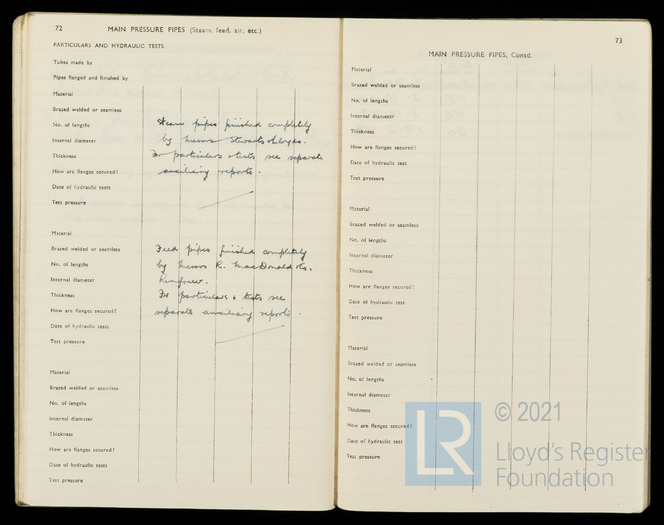 72 MAIN PRESSURE PIPES (Steam, feed, air, etc.)
PARTICULARS AND HYDRAULIC TESTS
Tubes made by
Pipes flanged and finished by
Material
Brazed welded or seamless
No. of lengths
Internal diameter
Thickness
How are flanges secured?
Date of hydraulic tests
Test pressure
Steam pipes finished completely
by Messrs Stewarts & Lloyds.
For particulars & tests see separate
auxiliary reports.
Material
Brazed welded or seamless
No. of lengths
Internal diameter
Thickness
How are flanges secured?
Date of hydraulic tests
Test pressure
Feed pipes finished completely
by Messrs R. MacDonald & Co.
Renfrew.
For particulars & tests see
separate auxiliary reports.
Material
Brazed welded or seamless
No. of lengths
Internal diameter
Thickness
How are flanges secured?
Date of hydraulic tests
Test pressure
73
MAIN PRESSURE PIPES, Contd.
Material
Brazed welded or seamless
No. of lengths
Internal diameter
Thickness
How are flanges secured?
Date of hydraulic test
Test pressure
Material
Brazed welded or seamless
No. of lengths
Internal diameter
Thickness
How are flanges secured?
Date of hydraulic tests
Test pressure
Material
Brazed welded or seamless
No. of lengths
Internal diameter
Thickness
How are flanges secured?
Date of hydraulic test
Test pressure
LR © 2021
Lloyd's Register
Foundation